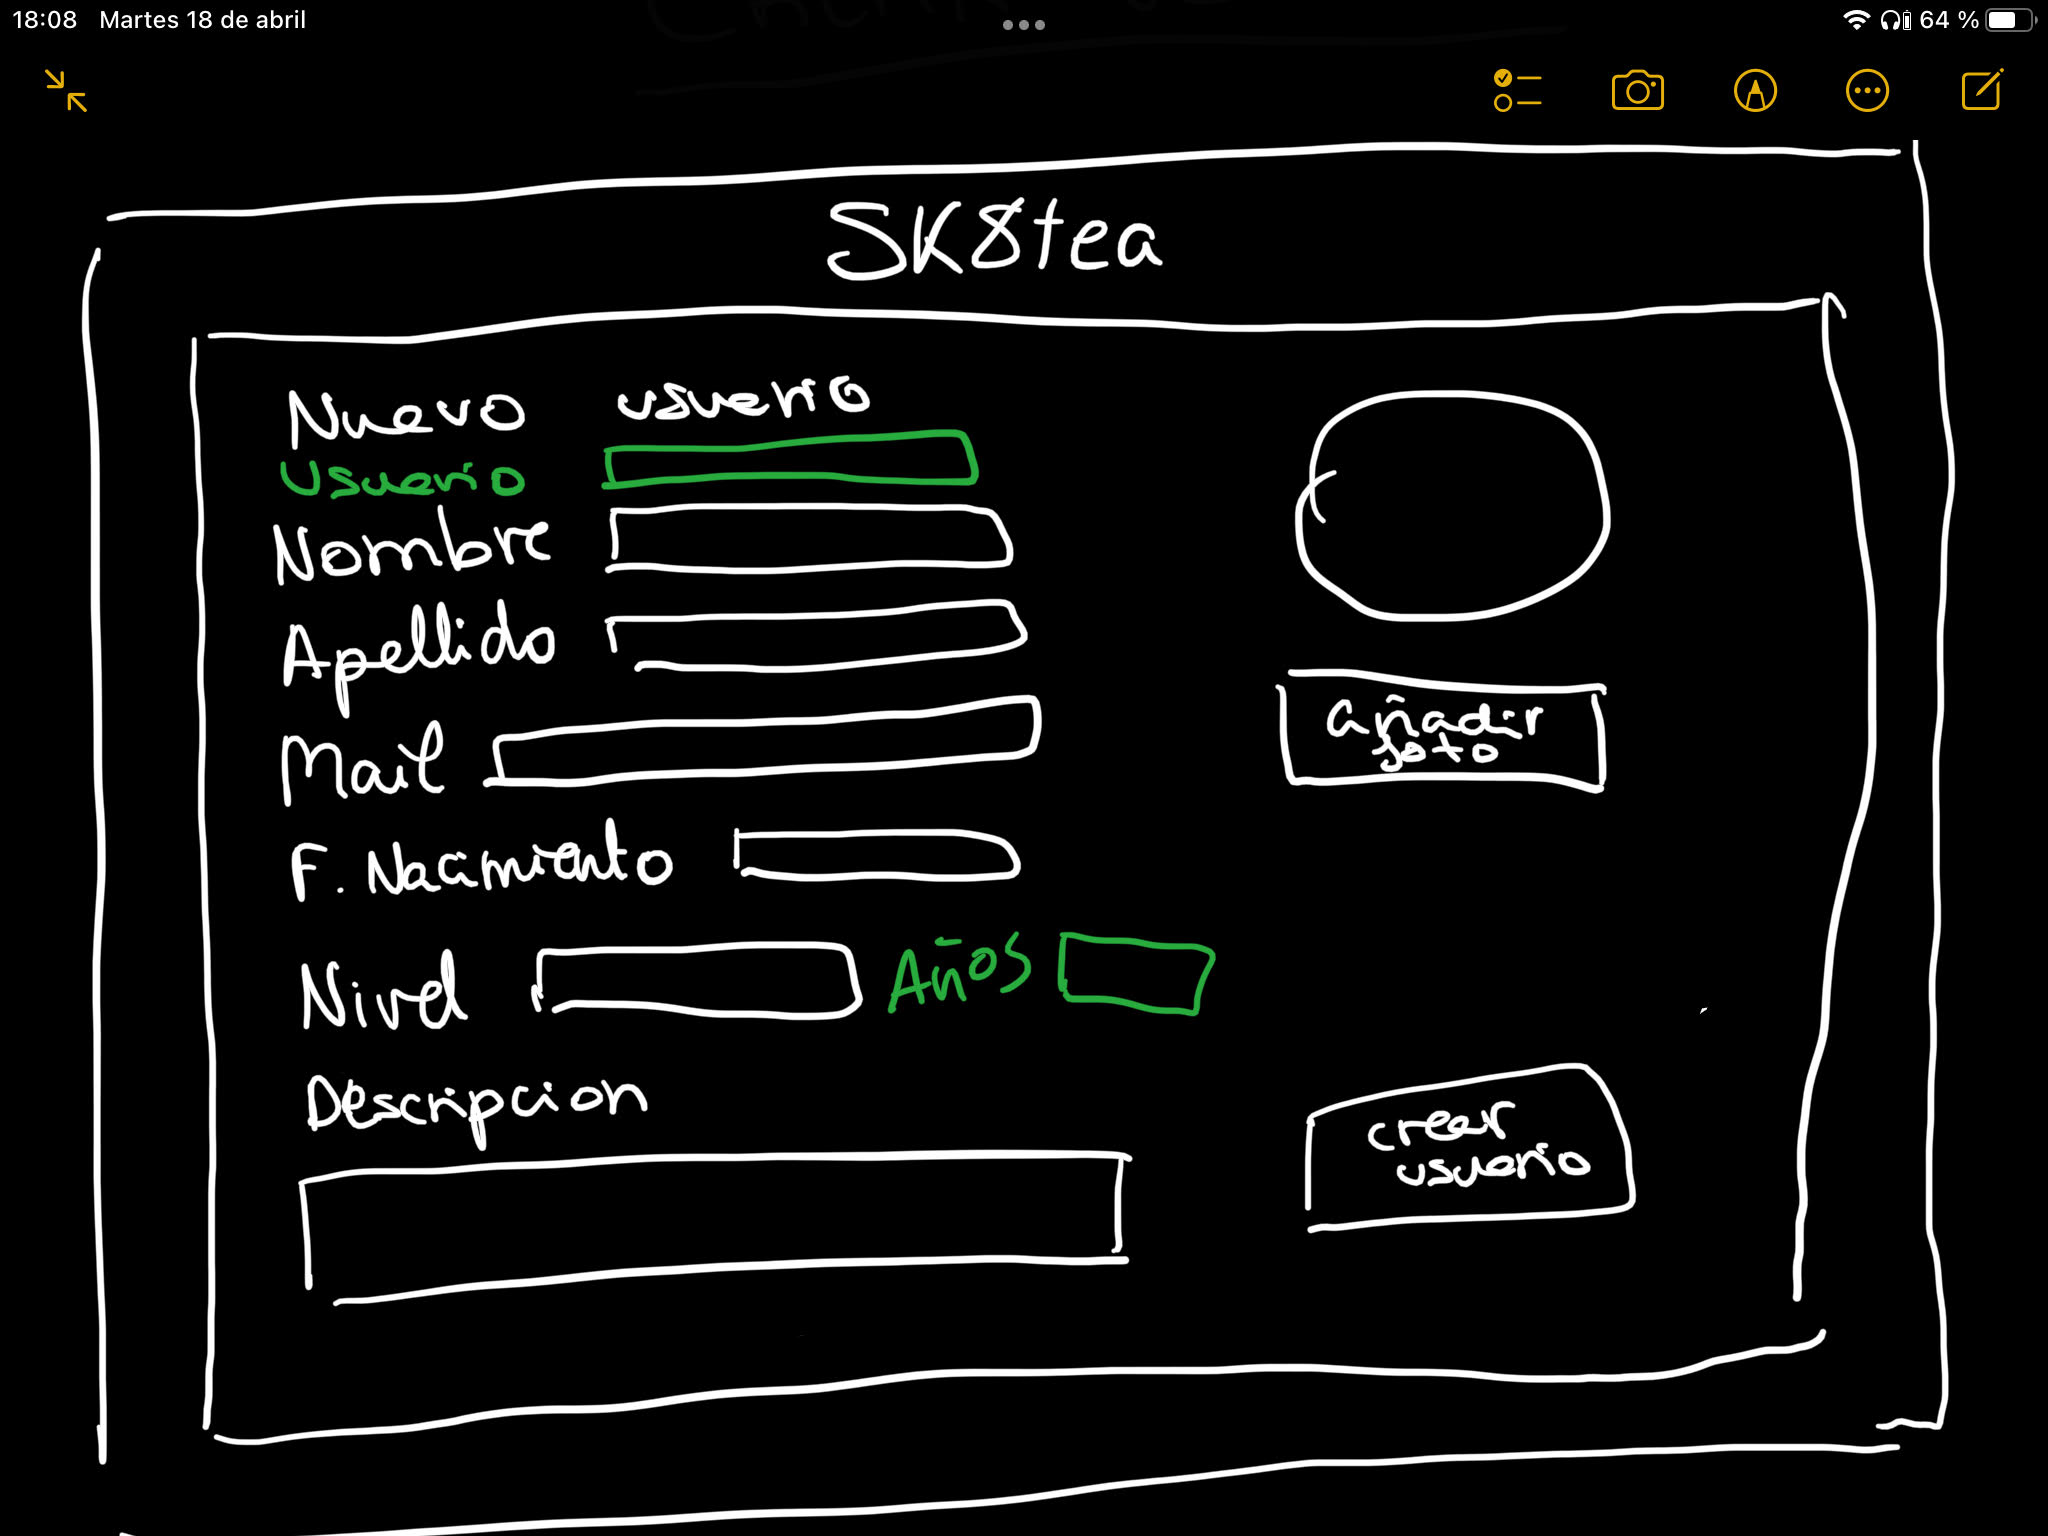 18:08 Martes 18 de abril
64 %
SK8tea
Nuevo usuario
Usuario
Nombre
Apellido
Mail
añadir
foto
F. Nacimiento
Nivel Años
Descripcion
crear
usuario